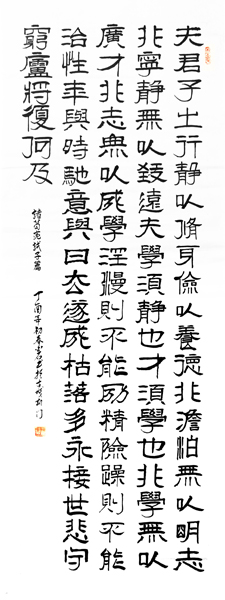 夫君子之行静以脩身儉以養德非澹泊無以明志
非寧静無以致遠夫學須静也才須學也非學無以
廣才非志無以成學淫漫則不能励精險躁則不能
治性年與時馳意與日去遂成枯落多不接世悲守
窮廬將復何及
诸葛亮诫子篇
丁酉年初春书